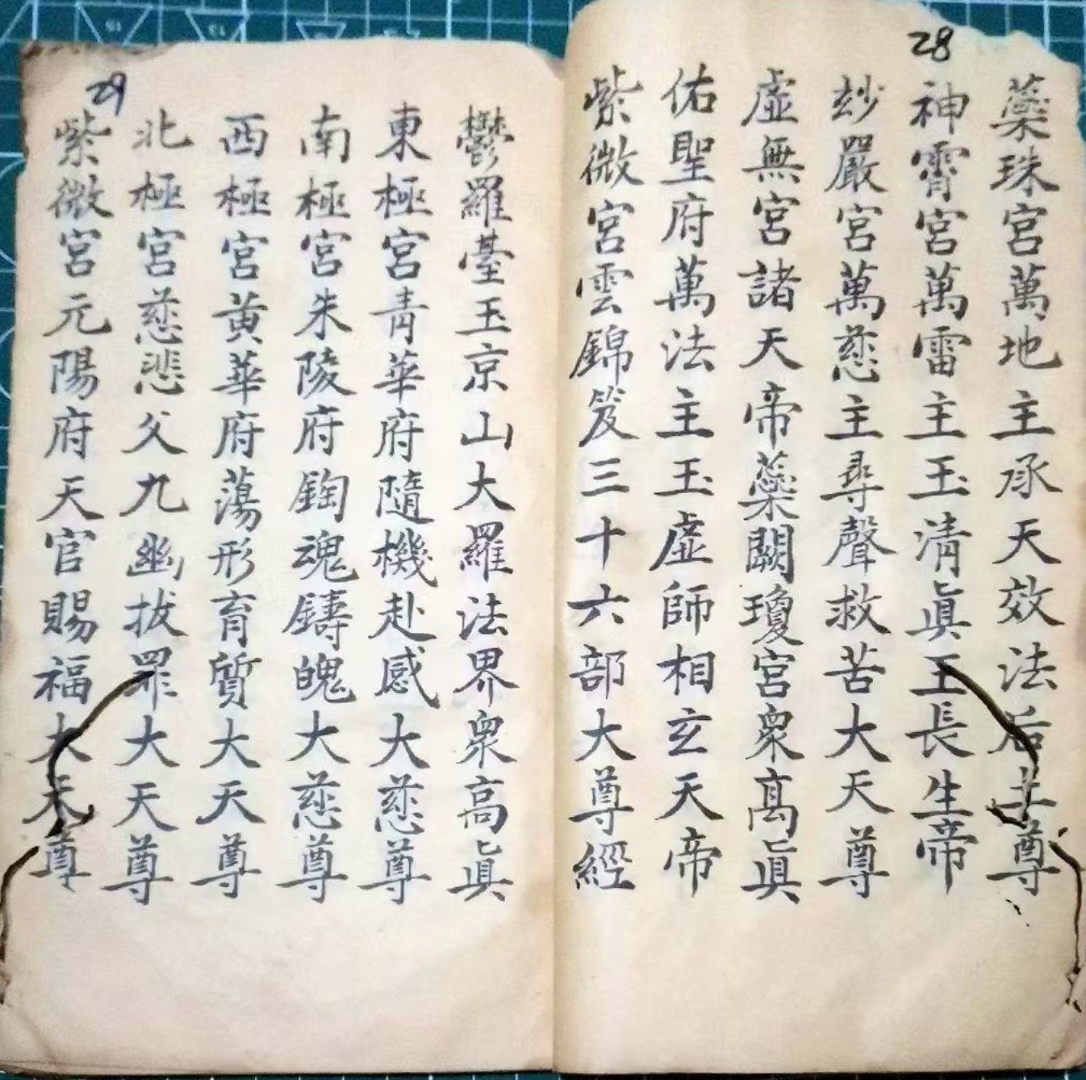 28
蘂珠宮萬地主承天效法后土尊
神霄宮萬雷主玉清真王長生帝
玅嚴宮萬慈主尋聲救苦大天尊
虛無宮諸天帝蘂闕瓊宮眾高真
佑聖府萬法主玉虛師相玄天帝
紫微宮雲錦笈三十六部大尊經
29
鬱羅臺玉京山大羅法界眾高真
東極宮青華府隨機赴感大慈尊
南極宮朱陵府鋾魂鑄魄大慈尊
西極宮黃華府蕩形育質大天尊
北極宮慈悲父九幽拔罪大天尊
紫微宮元陽府天官賜福大天尊